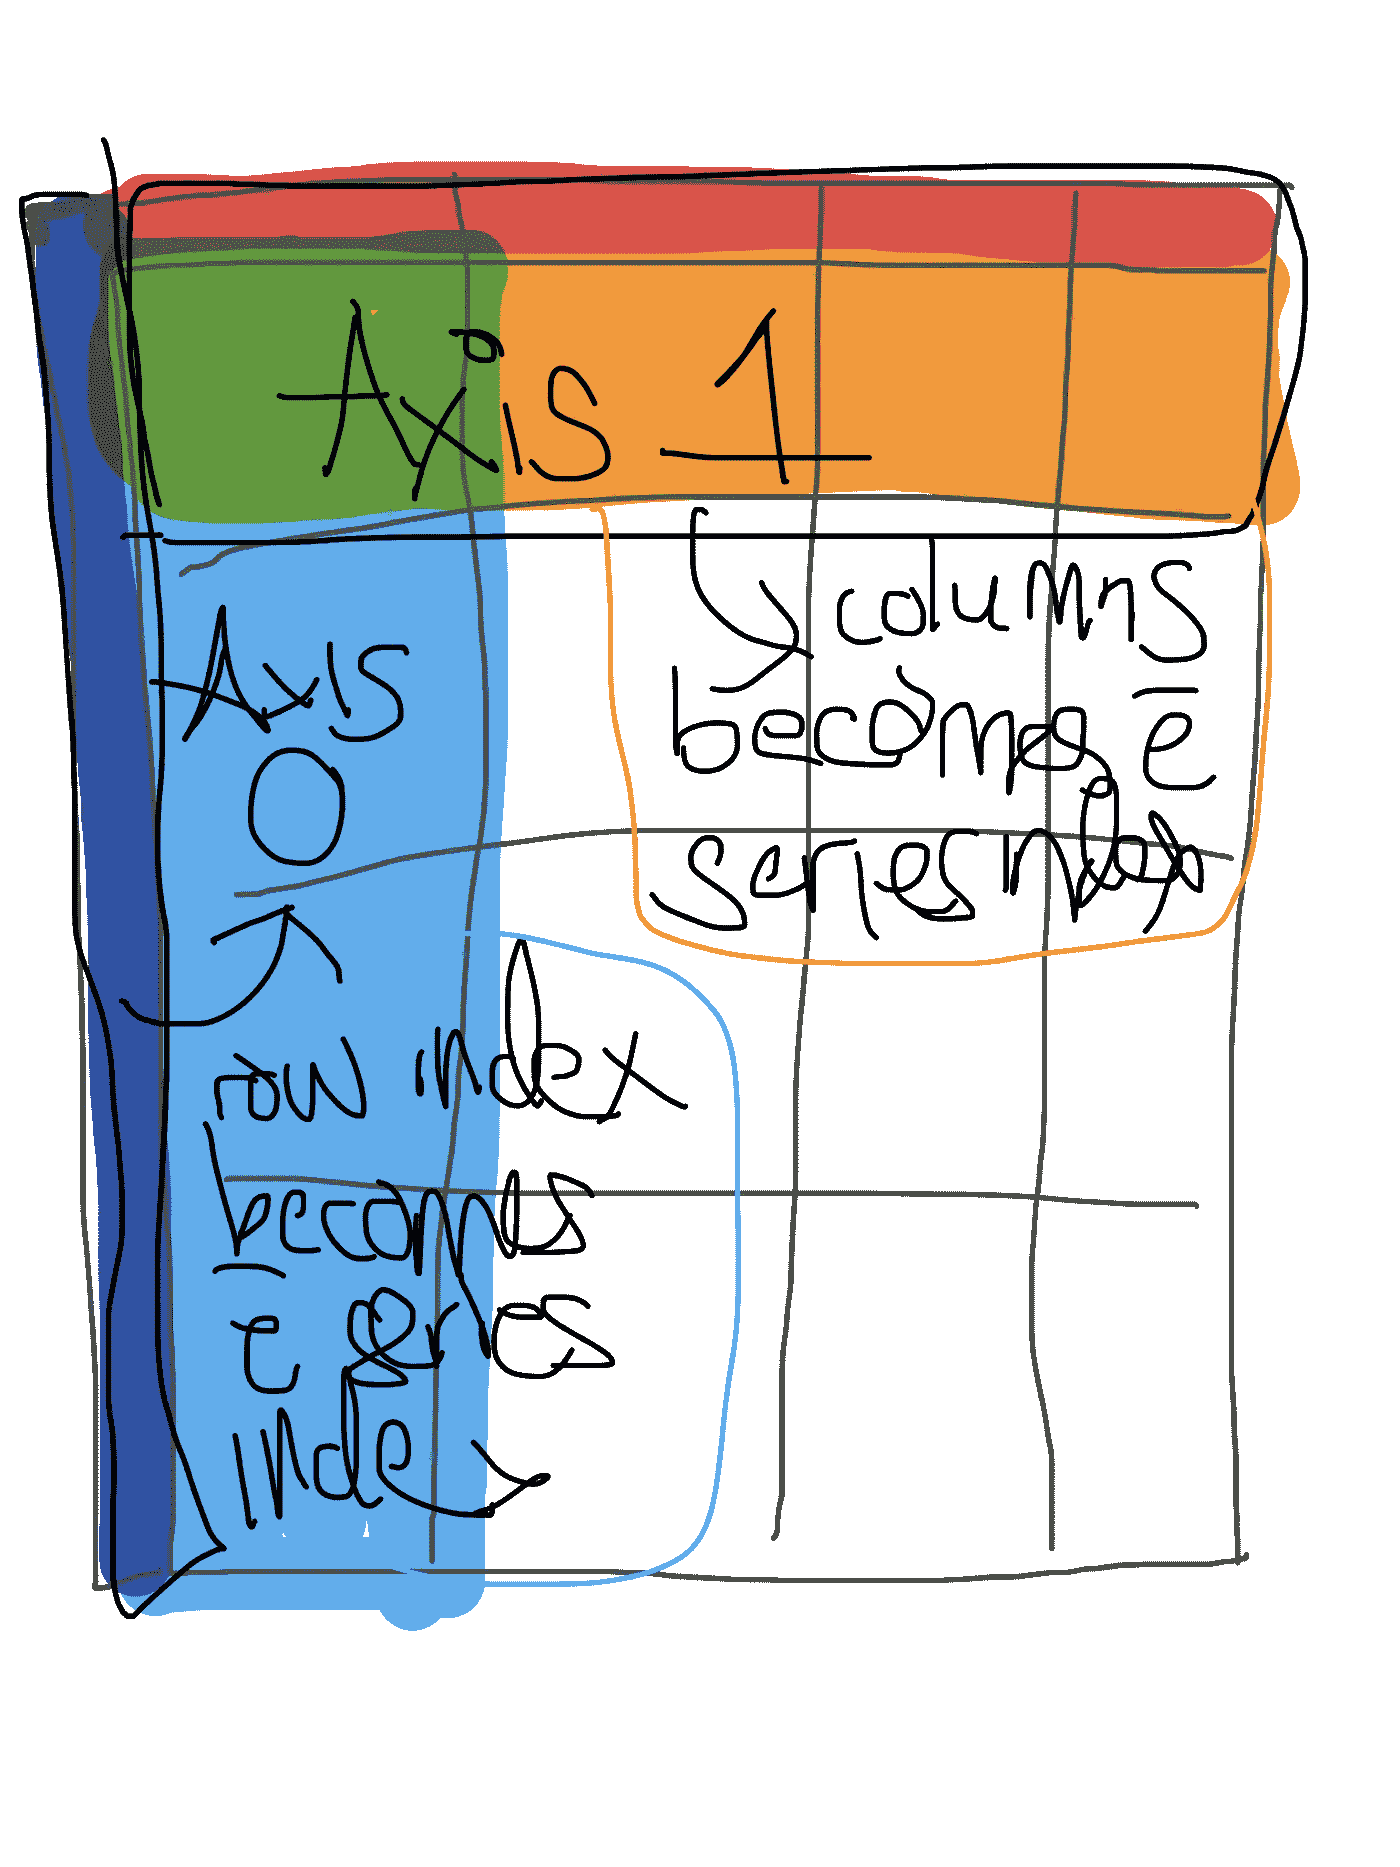 Axis 1
columns
becomes ē
series index
Axis
0
row index
becomes
ē series
index